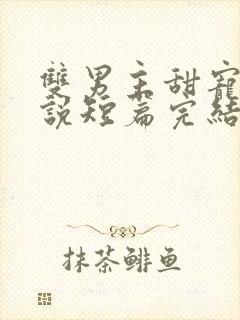 雙男主甜寵
說短篇完結
抹茶鲱鱼